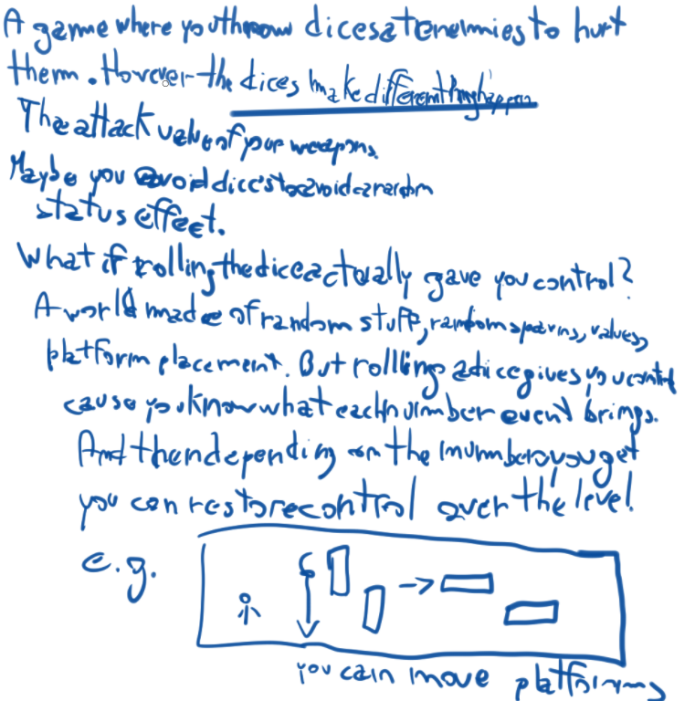 A game where you throw dices at enemies to hurt
them. However the dices make different things happen
The attack value of your weapons.
Maybe you avoid dices to avoid a random
status effect.
What if rolling the dice actually gave you control?
A world made of random stuff, random spawns, values,
platform placement. But rolling a dice gives you control
cause you know what each number event brings.
And then depending on the number you get
you can restore control over the level!
e.g.
you can move platforms